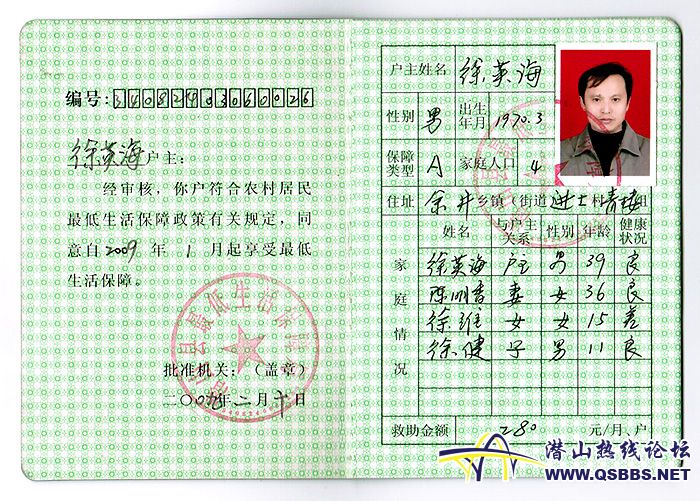 编号：34082403060026
徐英海户主：
经审核，你户符合农村居民
最低生活保障政策有关规定，同
意自2009年1月起享受最低
生活保障。
批准机关：（盖章）
二〇〇九年二月十日
户主姓名 徐英海
性别 男 出生年月 1970.3
保障类型 A 家庭人口 4
住址 余井乡镇（街道 进士村青楼组
家庭情况
姓名 与户主关系 性别 年龄 健康状况
徐英海 户主 男 39 良
陈明香 妻 女 36 良
徐维 女 女 15 差
徐健 子 男 11 良
救助金额 280 元/月、户
潜山热线论坛
WWW.QSBBS.NET